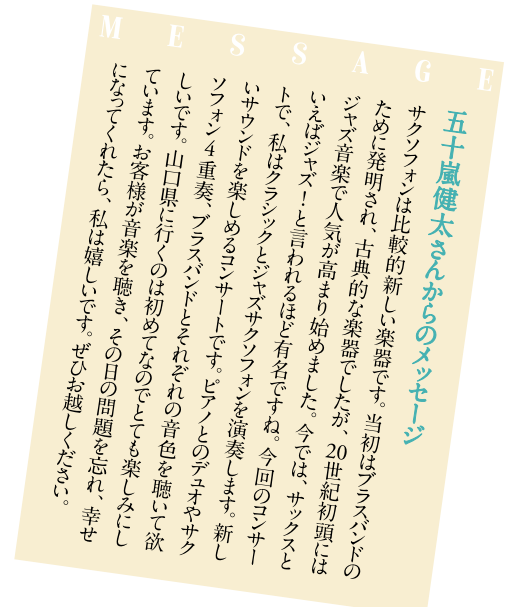 MESSAGE
五十嵐健太さんからのメッセージ
サクソフォンは比較的新しい楽器です。当初はブラスバンドの
ために発明され、古典的な楽器でしたが、20世紀初頭には
ジャズ音楽で人気が高まり始めました。今では、サックスと
いえばジャズ！と言われるほど有名ですね。今回のコンサー
トで、私はクラシックとジャズサクソフォンを演奏します。新し
いサウンドを楽しめるコンサートです。ピアノとのデュオやサク
ソフォン4重奏、ブラスバンドとそれぞれの音色を聴いて欲
しいです。山口県に行くのは初めてなのでとても楽しみにし
ています。お客様が音楽を聴き、その日の問題を忘れ、幸せ
になってくれたら、私は嬉しいです。ぜひお越しください。